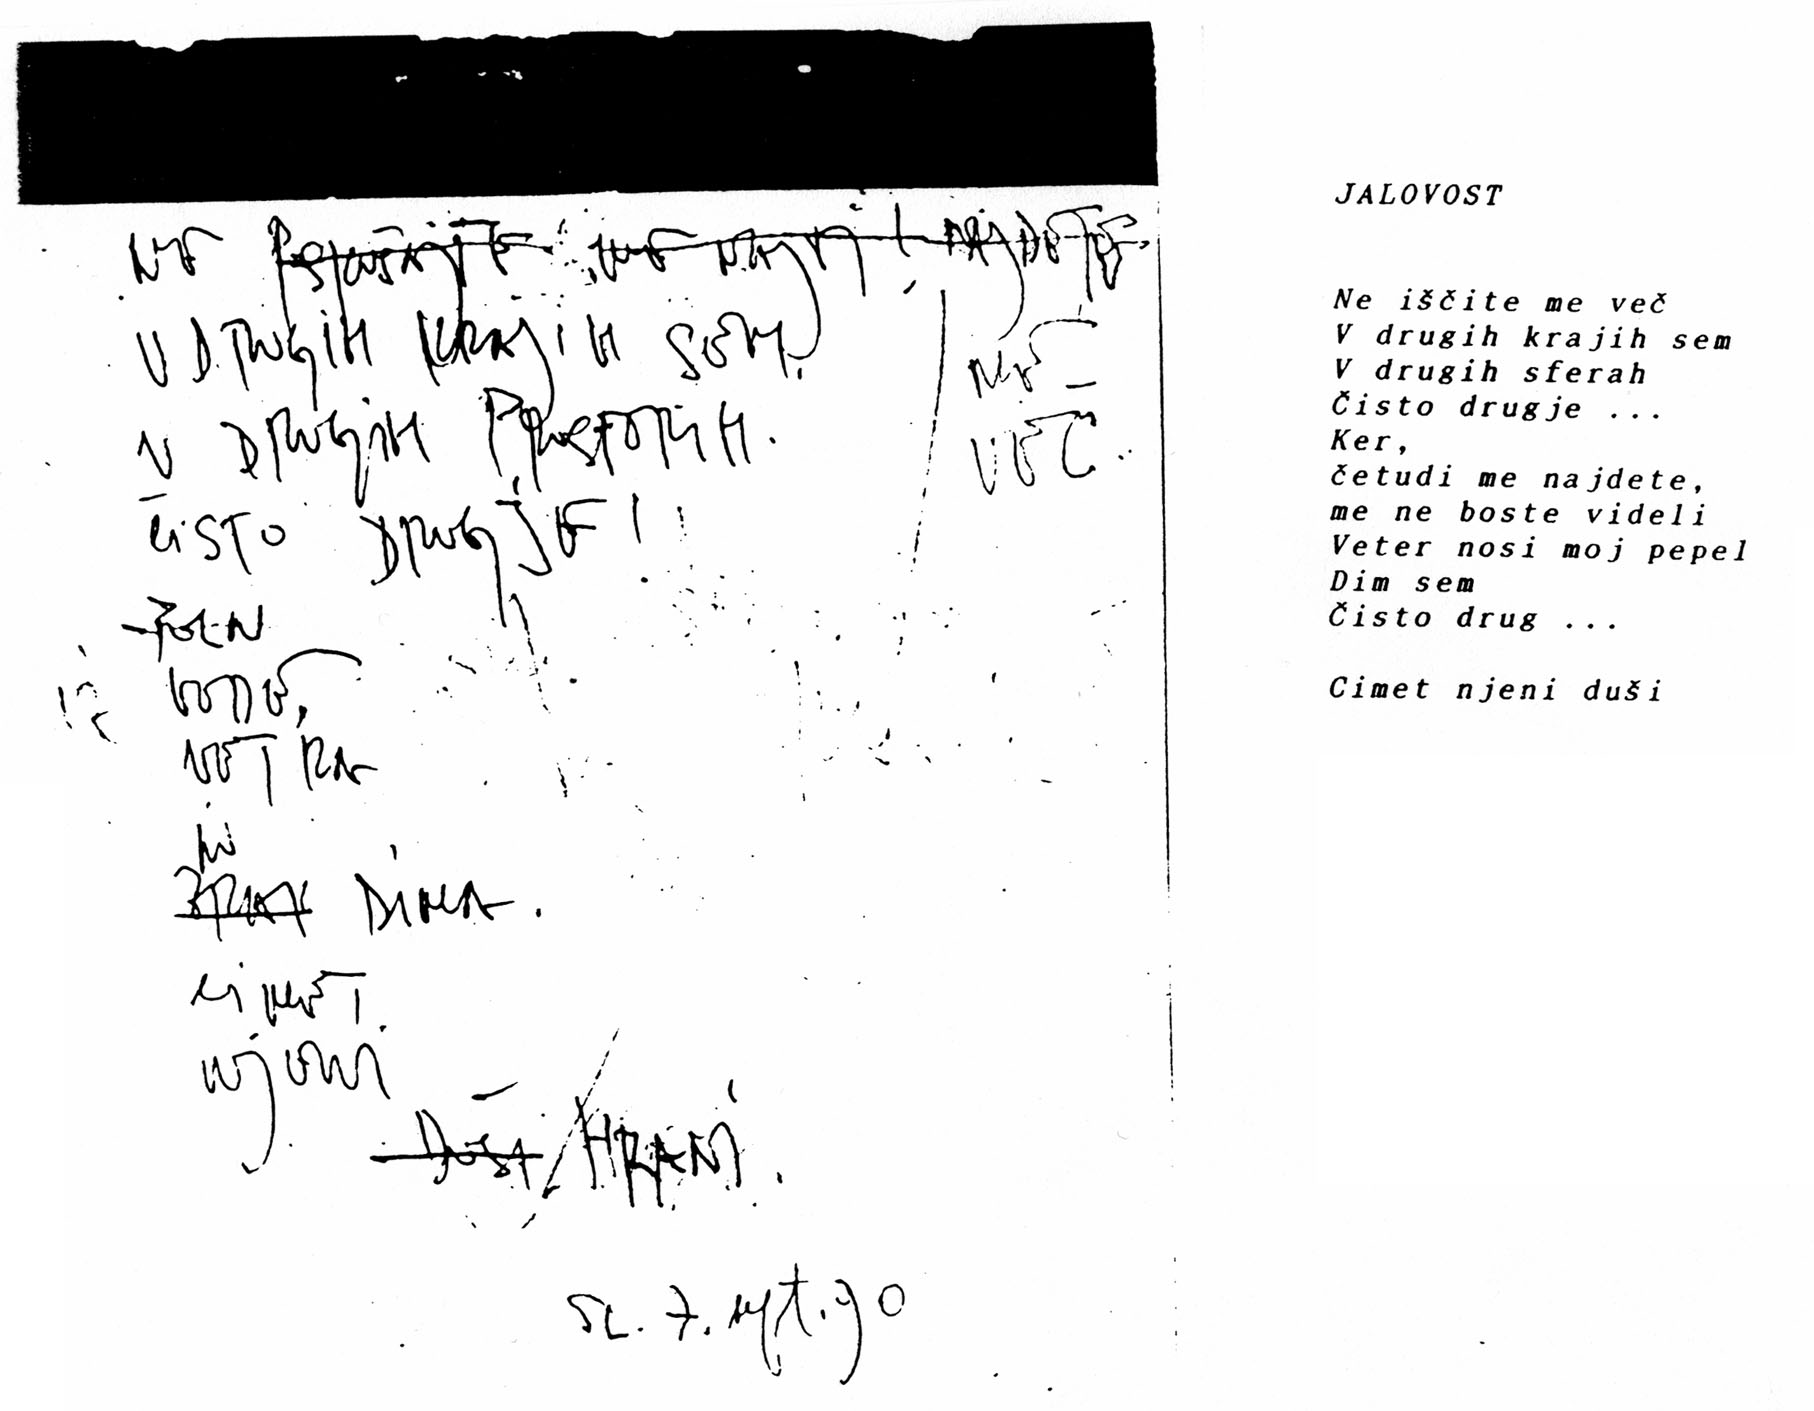 NE POSKUŠAJTE ME NAJTI! NAJDETE
V DRUGIH KRAJIH SEM.
ME
V DRUGIH PROSTORIH.
VEČ.
ČISTO DRUGJE!
POLN
VODE,
VETRA
IN
ZRAKA DIMA.
CIMET
NJENI
DUŠA HRANI.
7. sept. 90
JALOVOST
Ne iščite me več
V drugih krajih sem
V drugih sferah
Čisto drugje ...
Ker,
četudi me najdete,
me ne boste videli
Veter nosi moj pepel
Dim sem
Čisto drug ...
Cimet njeni duši